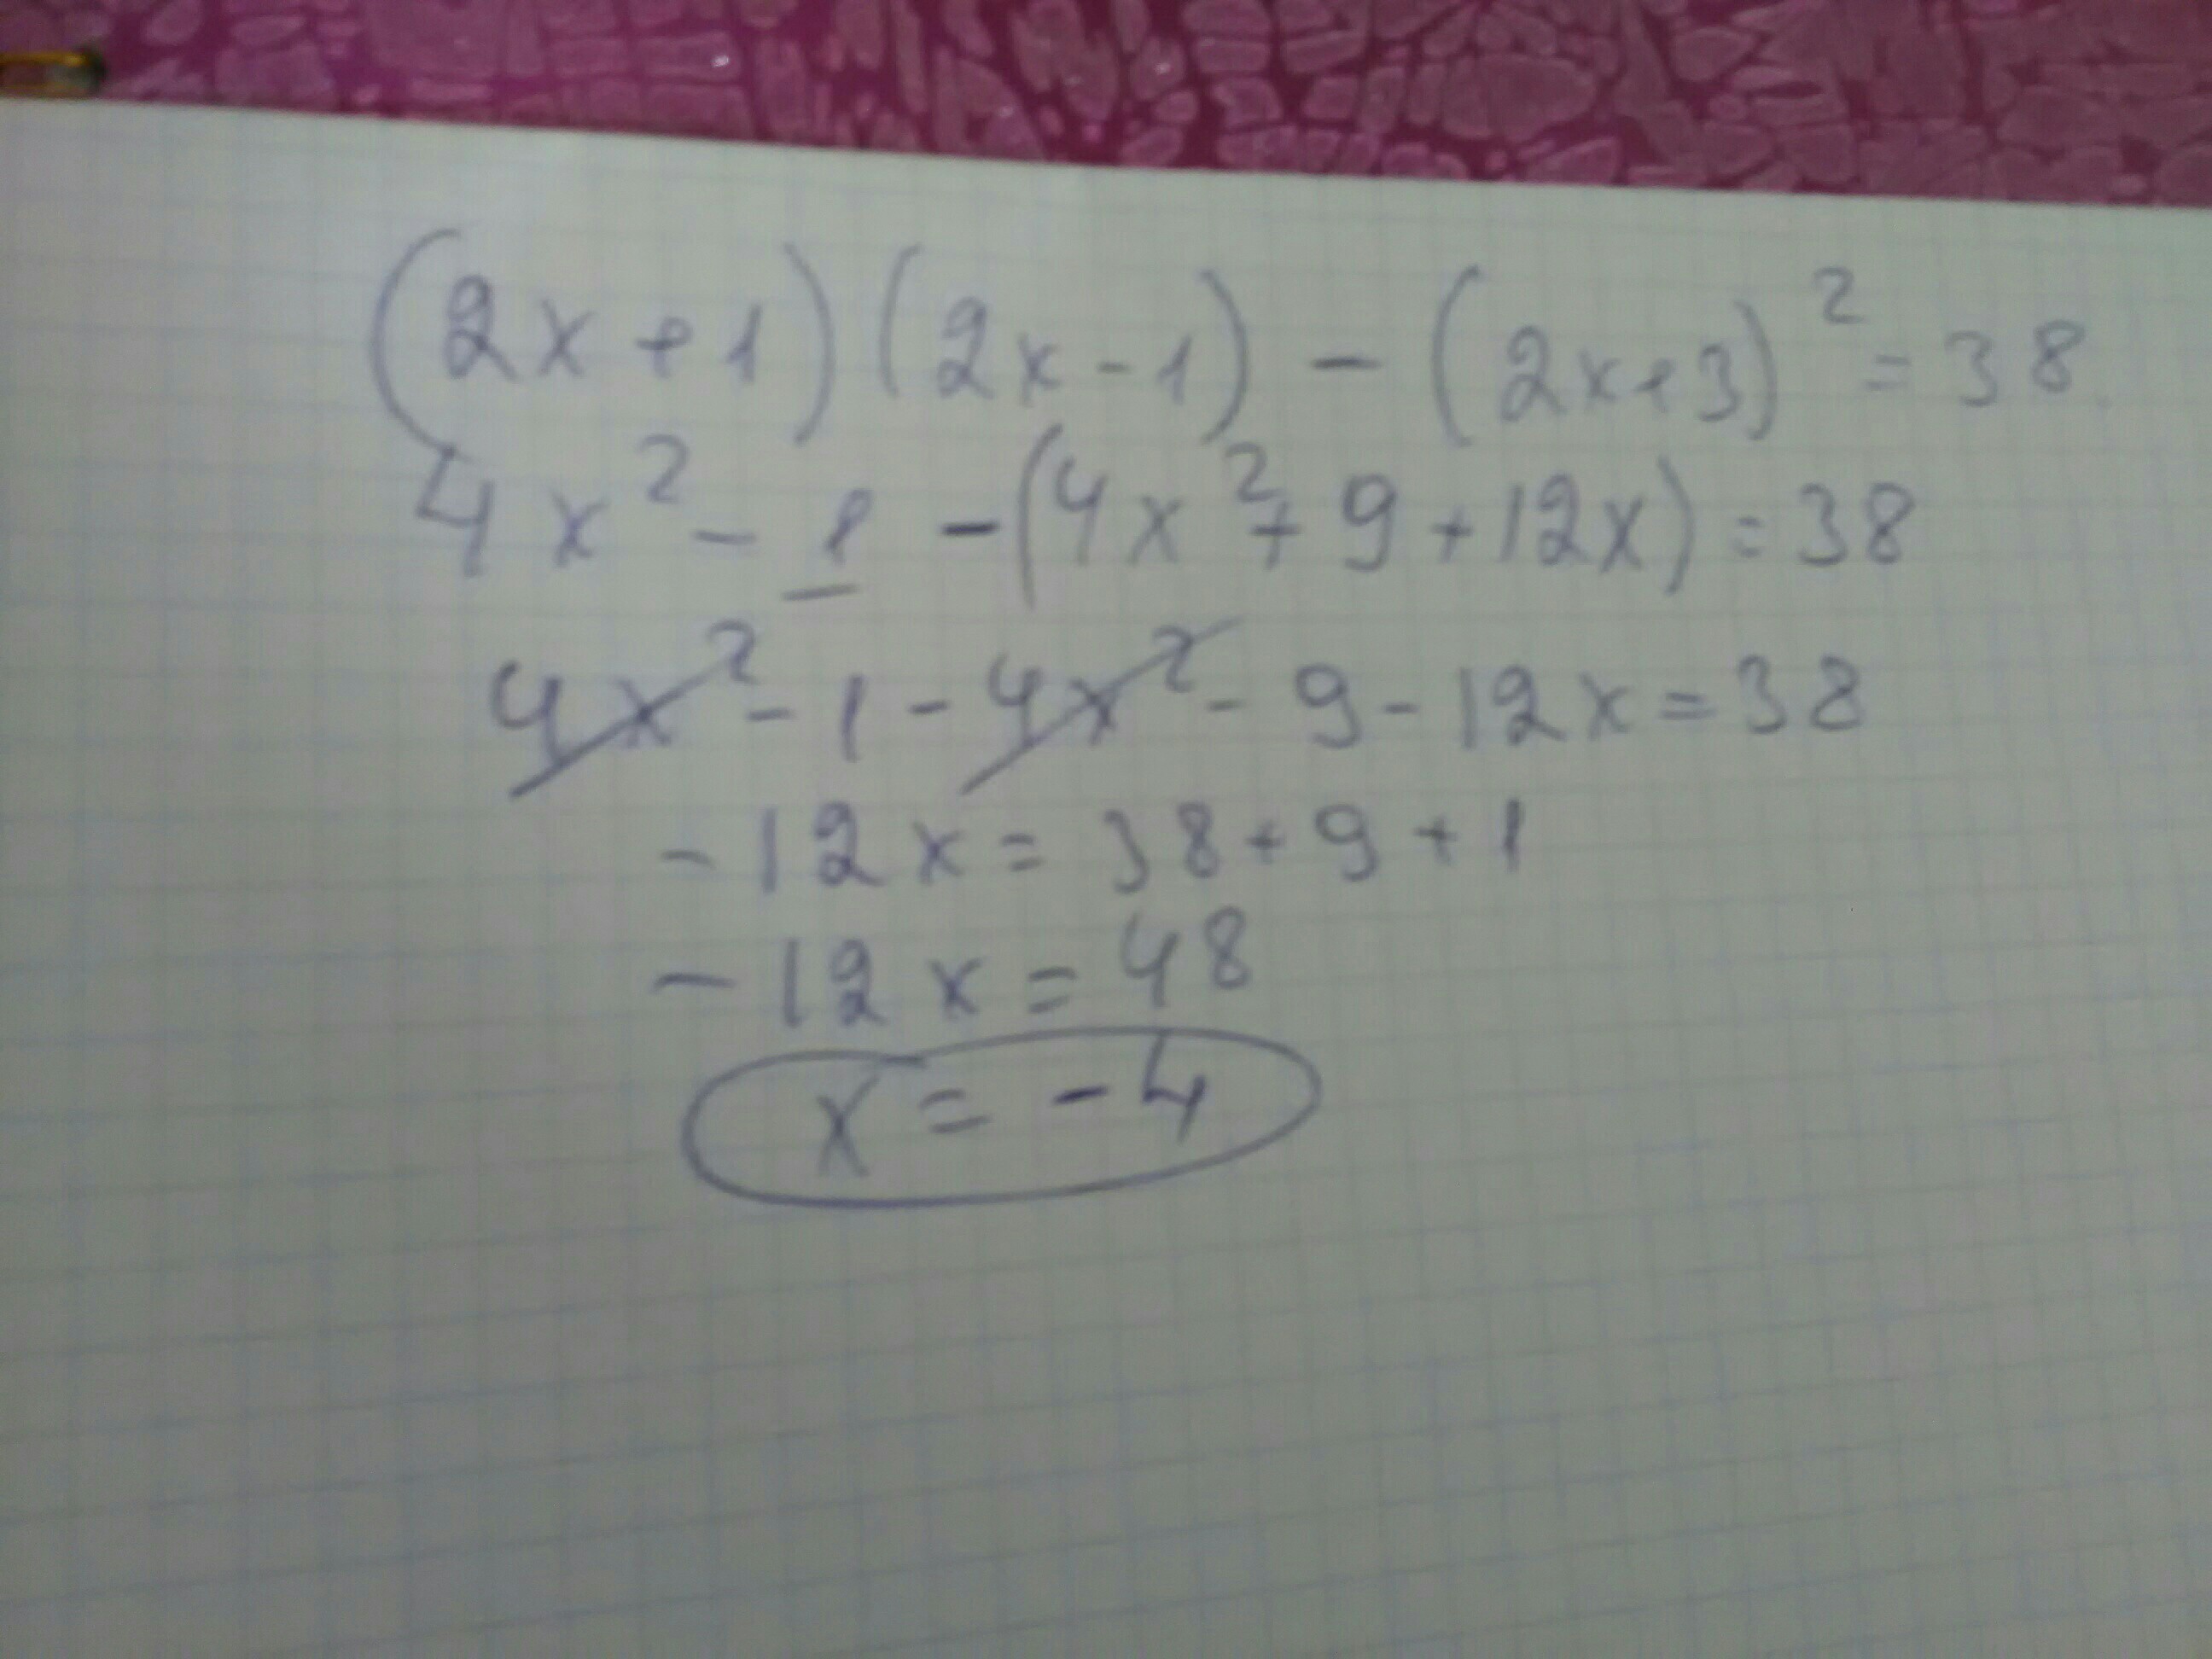 (2x+1)(2x-1)-(2x+3)²=38
4x²-1-(4x²+9+12x)=38
4x²-1-4x²-9-12x=38
-12x=38+9+1
-12x=48
x=-4